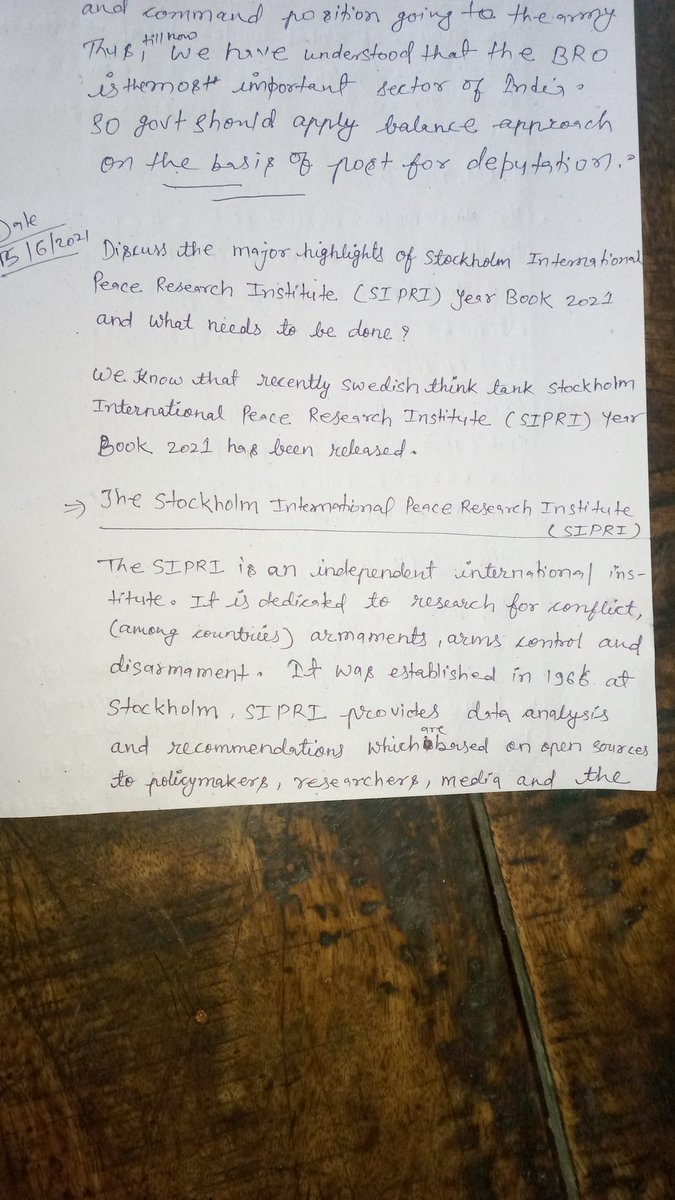 and command position going to the army
Thus, till now we have understood that the BRO
is the most important sector of India.
So govt should apply balance approach
on the basis of post for deputation.
Date
15/6/2021
Discuss the major highlights of Stockholm International
Peace Research Institute (SIPRI) Year Book 2021
and what needs to be done?
We know that recently swedish think tank stockholm
International Peace Research Institute (SIPRI) Year
Book 2021 has been released.
⇒ The Stockholm International Peace Research Institute
(SIPRI)
The SIPRI is an independent international ins-
titute. It is dedicated to research for conflict,
(among countries) armaments, arms control and
disarmament. It was established in 1966 at
Stockholm, SIPRI provides data analysis
and recommendations which are based on open sources
to policymakers, researchers, media and the